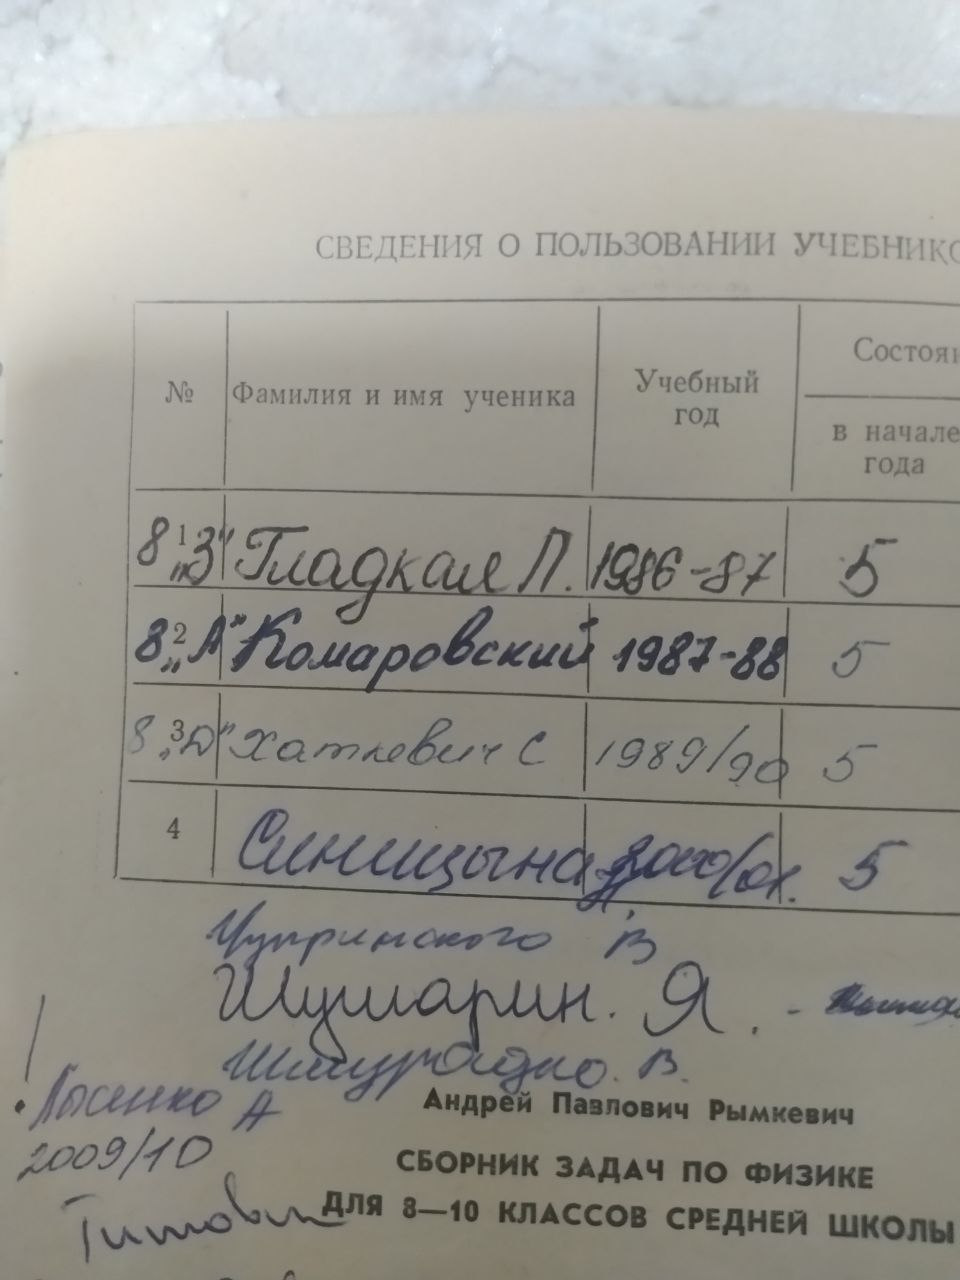 СВЕДЕНИЯ О ПОЛЬЗОВАНИИ УЧЕБНИКО
№ Фамилия и имя ученика Учебный год Состоян
в начале года
1 8 „З" Гладкая Л. 1986-87 5
2 8 „А" Комаровский 1987-88 5
3 8 „Д" Хаткевич С 1989/90 5
4 Синицына 2000/01. 5
Чупринского В
Шушарин. Я.
В.
Лысенко А
2009/10
Андрей Павлович Рымкевич
СБОРНИК ЗАДАЧ ПО ФИЗИКЕ
Титович
ДЛЯ 8—10 КЛАССОВ СРЕДНЕЙ ШКОЛЫ